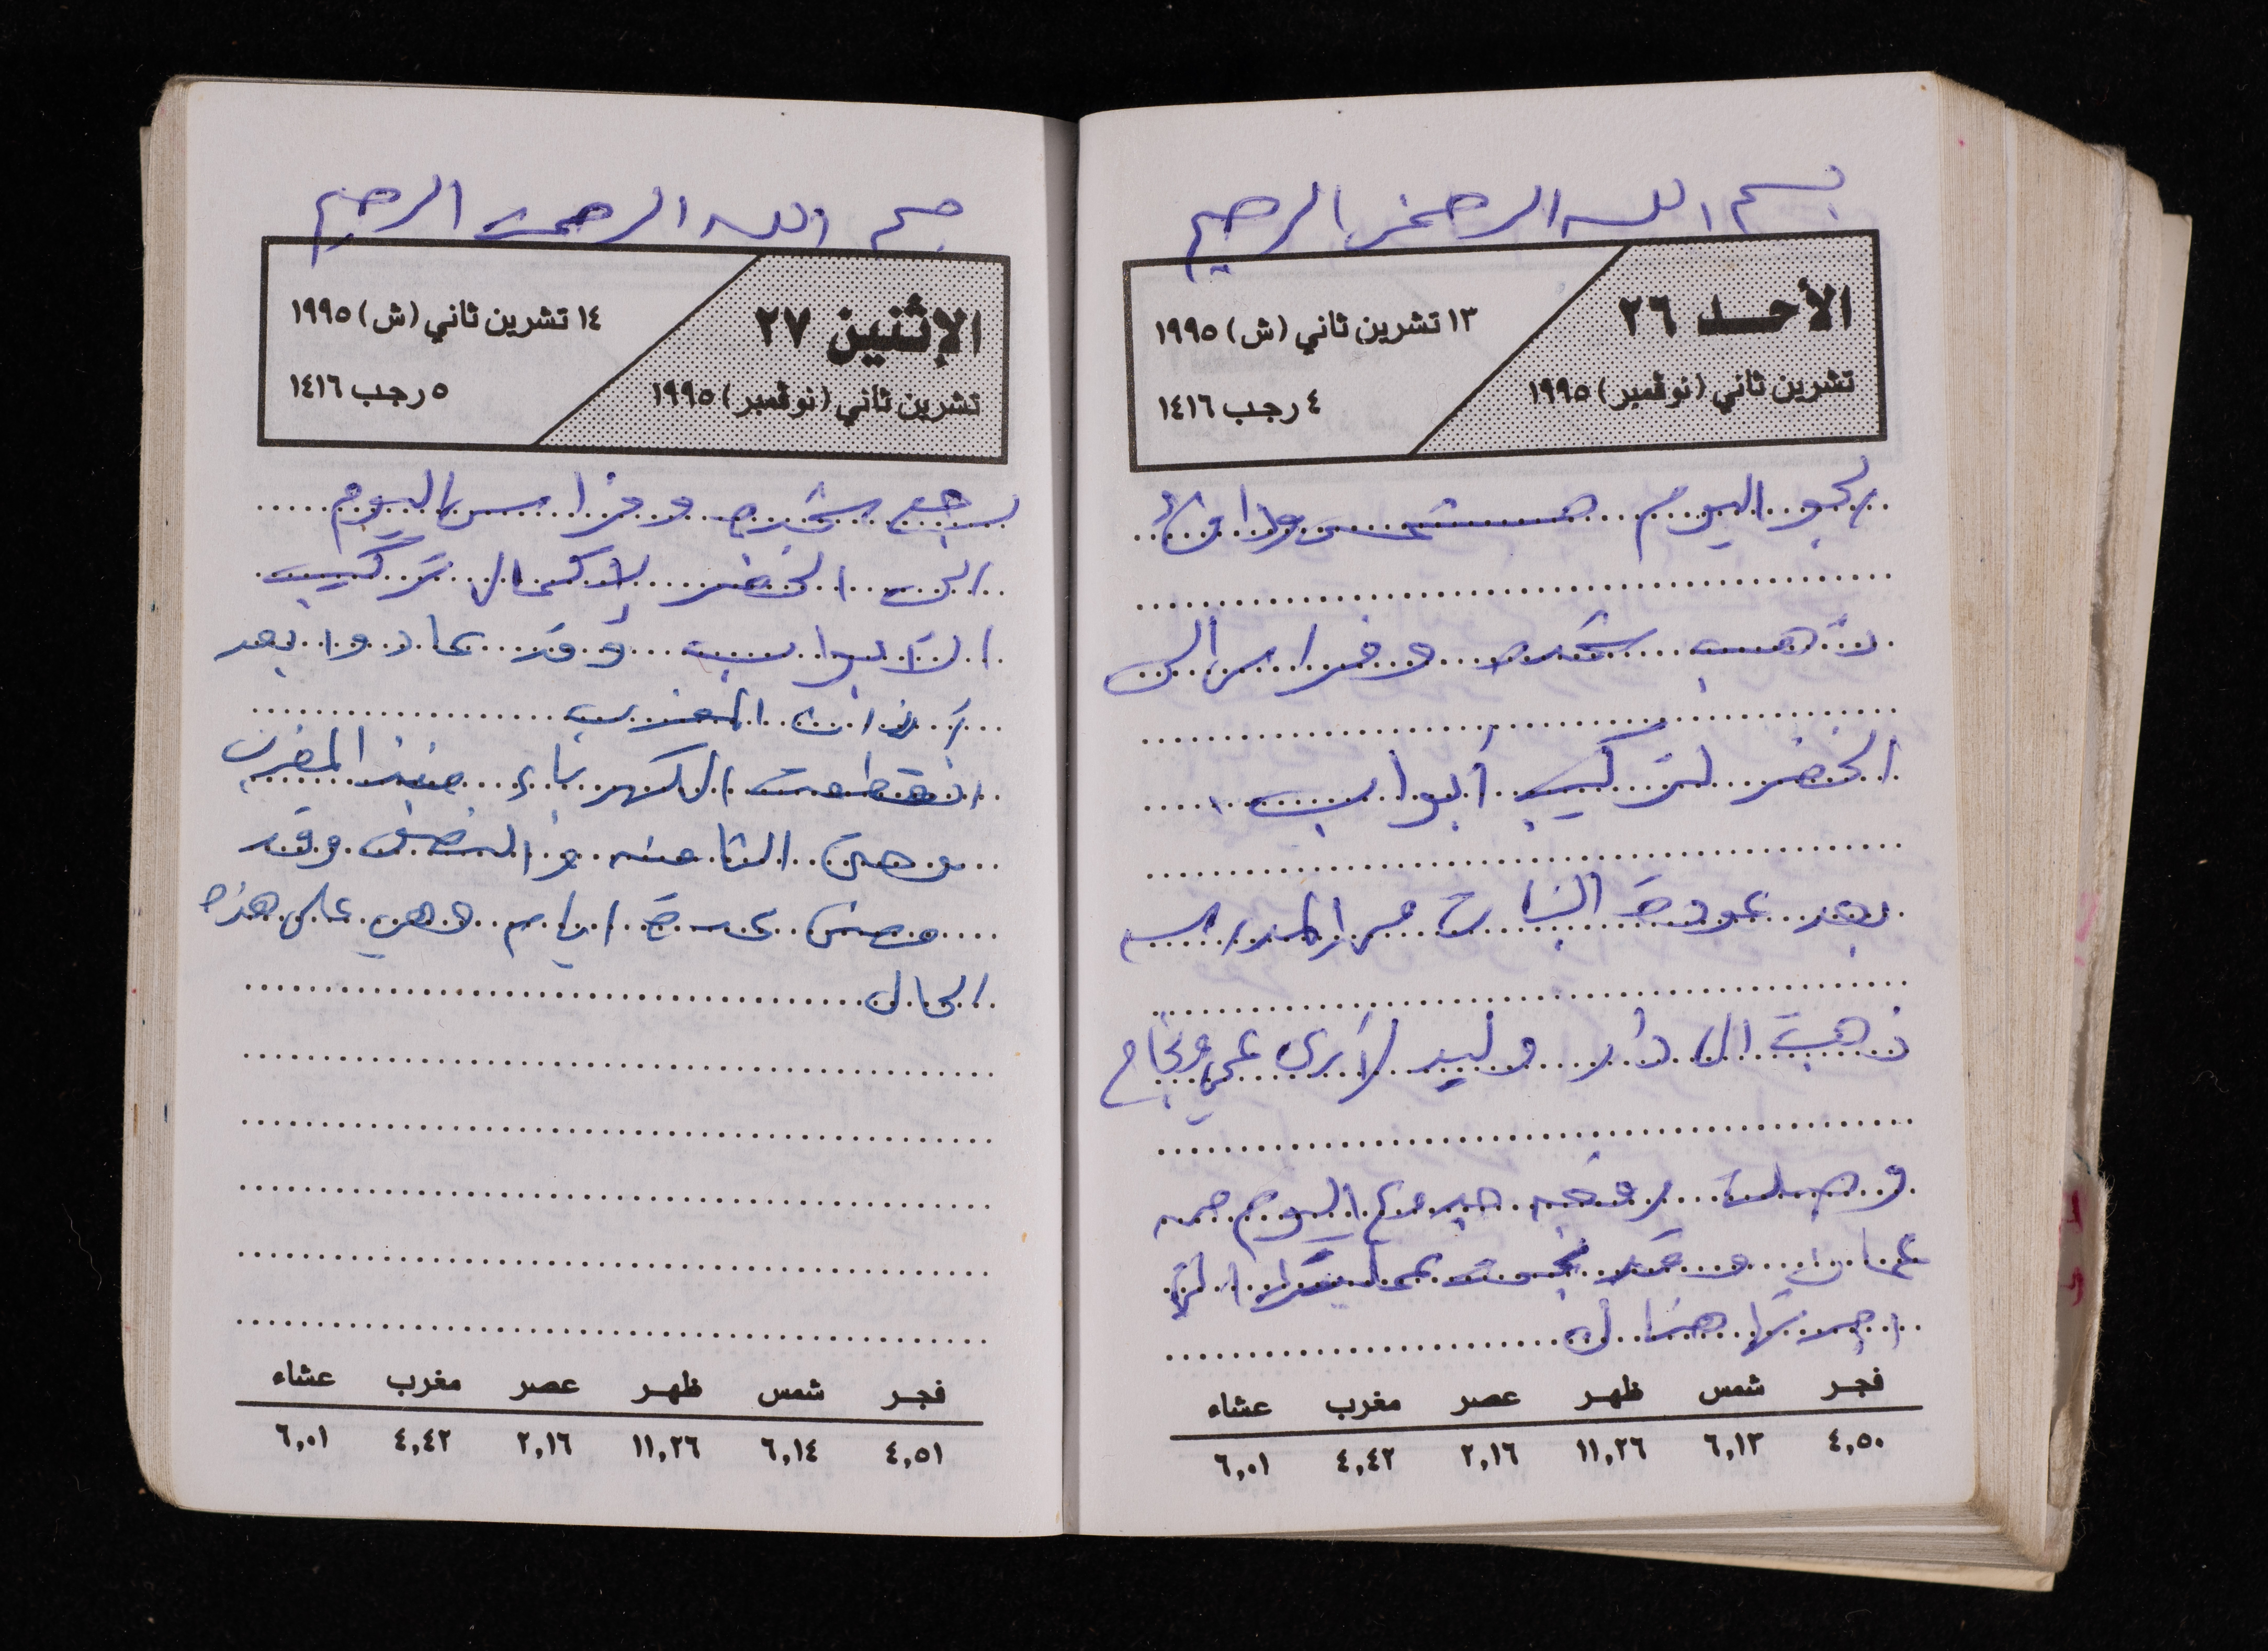 بسم الله الرحمن الرحيم
الأحد ٢٦
تشرين ثاني (نوڤمبر) ١٩٩٥
١٣ تشرين ثاني (ش) ١٩٩٥
٤ رجب ١٤١٦
الجو اليوم مشمس ودافئ
ذهب شحده وفراس الى
الخضر لتركيب أبواب
بعد عودة البنات من المدرسه
ذهبت الى دار وليد لأرى عمي ونجاح
وصلت زوجه اليوم من
عمان وقد نجحت عمليتها التي
اجرتها هناك
فجر شمس ظهر عصر مغرب عشاء
٤,٥٠ ٦,١٣ ١١,٢٦ ٢,١٦ ٤,٤٢ ٦,٠١
بسم الله الرحمن الرحيم
الإثنين ٢٧
تشرين ثاني (نوڤمبر) ١٩٩٥
١٤ تشرين ثاني (ش) ١٩٩٥
٥ رجب ١٤١٦
رجع شحده وفراس اليوم
الى الخضر لإكمال تركيب
الأبواب وقد عادوا بعد
أذان المغرب
انقطعت الكهرباء منذ المغرب
وحتى الثامنه والنصف وقد
مضى عدة ايام وهي على هذه
الحال
فجر شمس ظهر عصر مغرب عشاء
٤,٥١ ٦,١٤ ١١,٢٦ ٢,١٦ ٤,٤٢ ٦,٠١